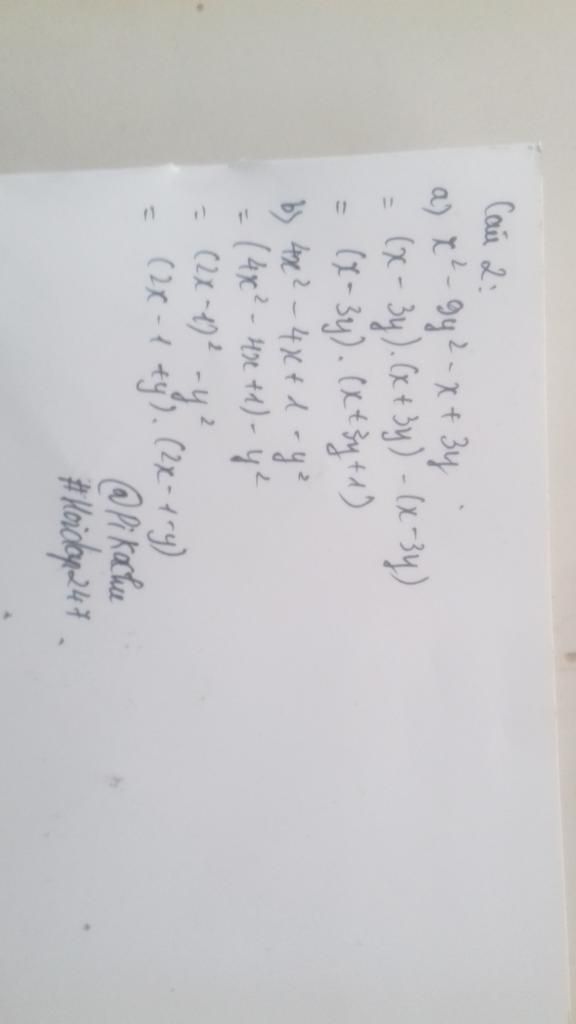 Câu 2:
a) x² - 9y² - x + 3y
= (x - 3y).(x + 3y) - (x - 3y)
= (x - 3y).(x + 3y + 1)
b) 4x² - 4x + 1 - y²
= (4x² - 4x + 1) - y²
= (2x - 1)² - y²
= (2x - 1 + y).(2x - 1 - y)
@Pikachu
#Hoidap247